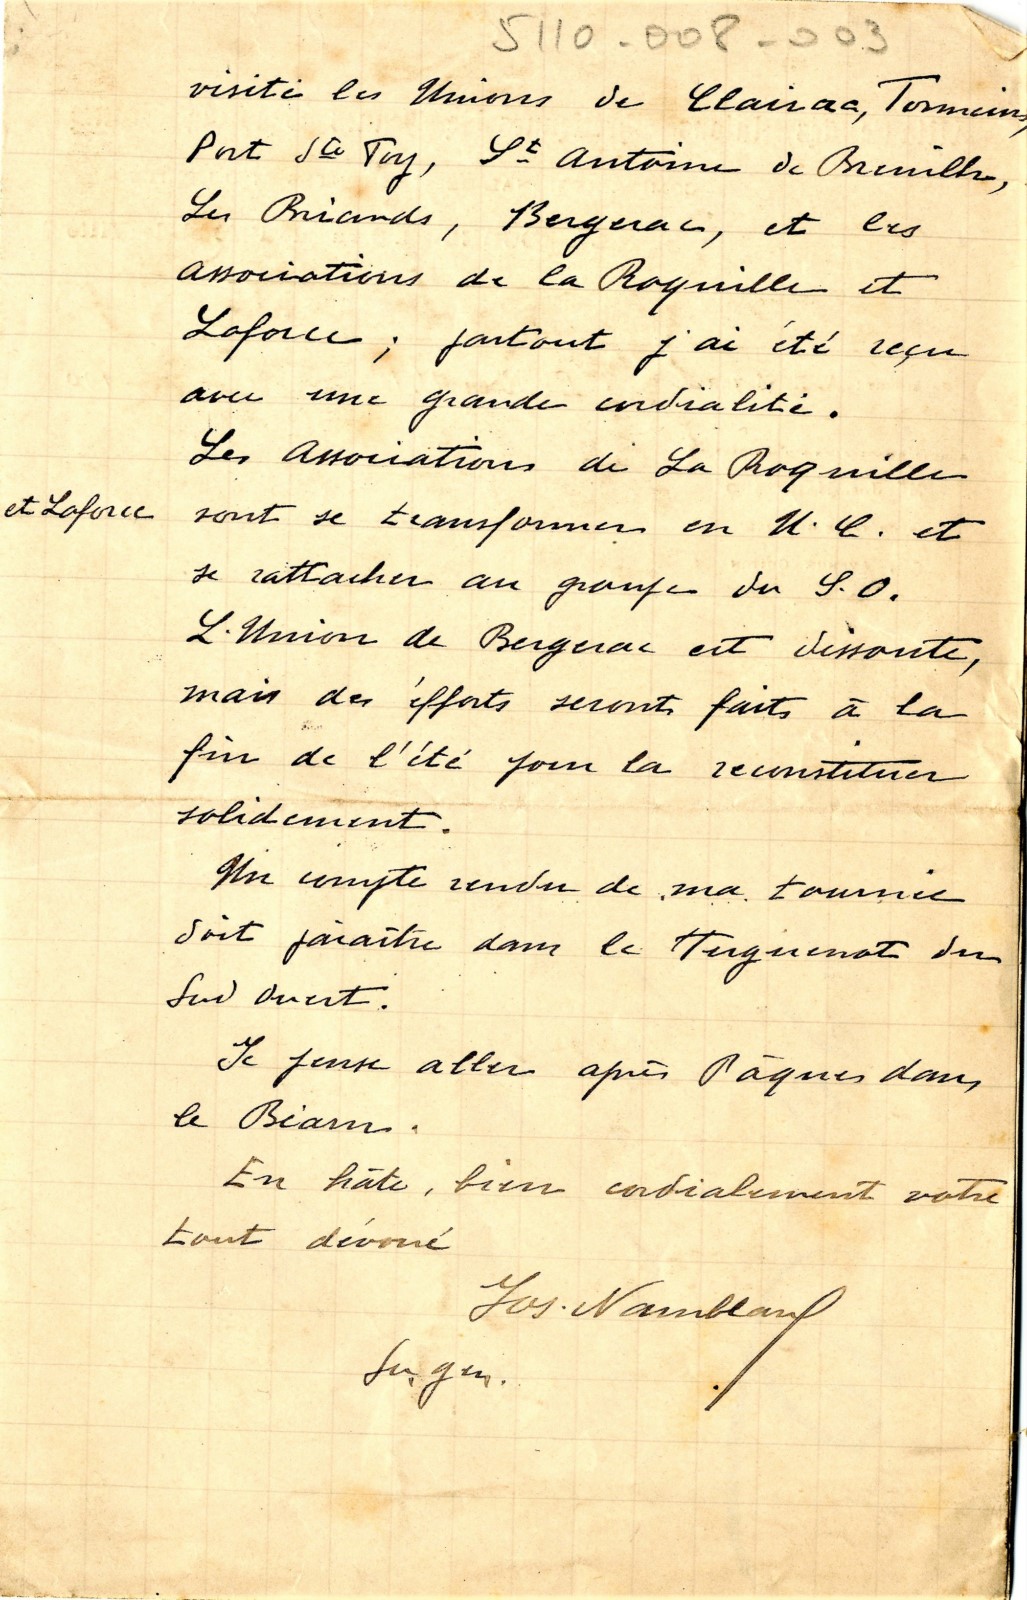 5110-008-003
visité les Unions de Clairac, Tonneins,
Port Ste Foy, St Antoine de Breuilh,
Les Briands, Bergerac, et les
associations de la Roquille et
Laforce ; partout j'ai été reçu
avec une grande cordialité.
Les Associations de La Roquille
et Laforce sont se transformer en U. C. et
se rattacher au groupe du S. O.
L'Union de Bergerac est dissoute,
mais des éfforts seront faits à la
fin de l'été pour la reconstituer
solidement.
Un compte rendu de ma tournée
doit paraître dans le Huguenot du
Sud Ouest.
Je pense aller après Pâques dans
le Béarn.
En hâte, bien cordialement votre
tout dévoué
Jos. Namblard
Se. gen.